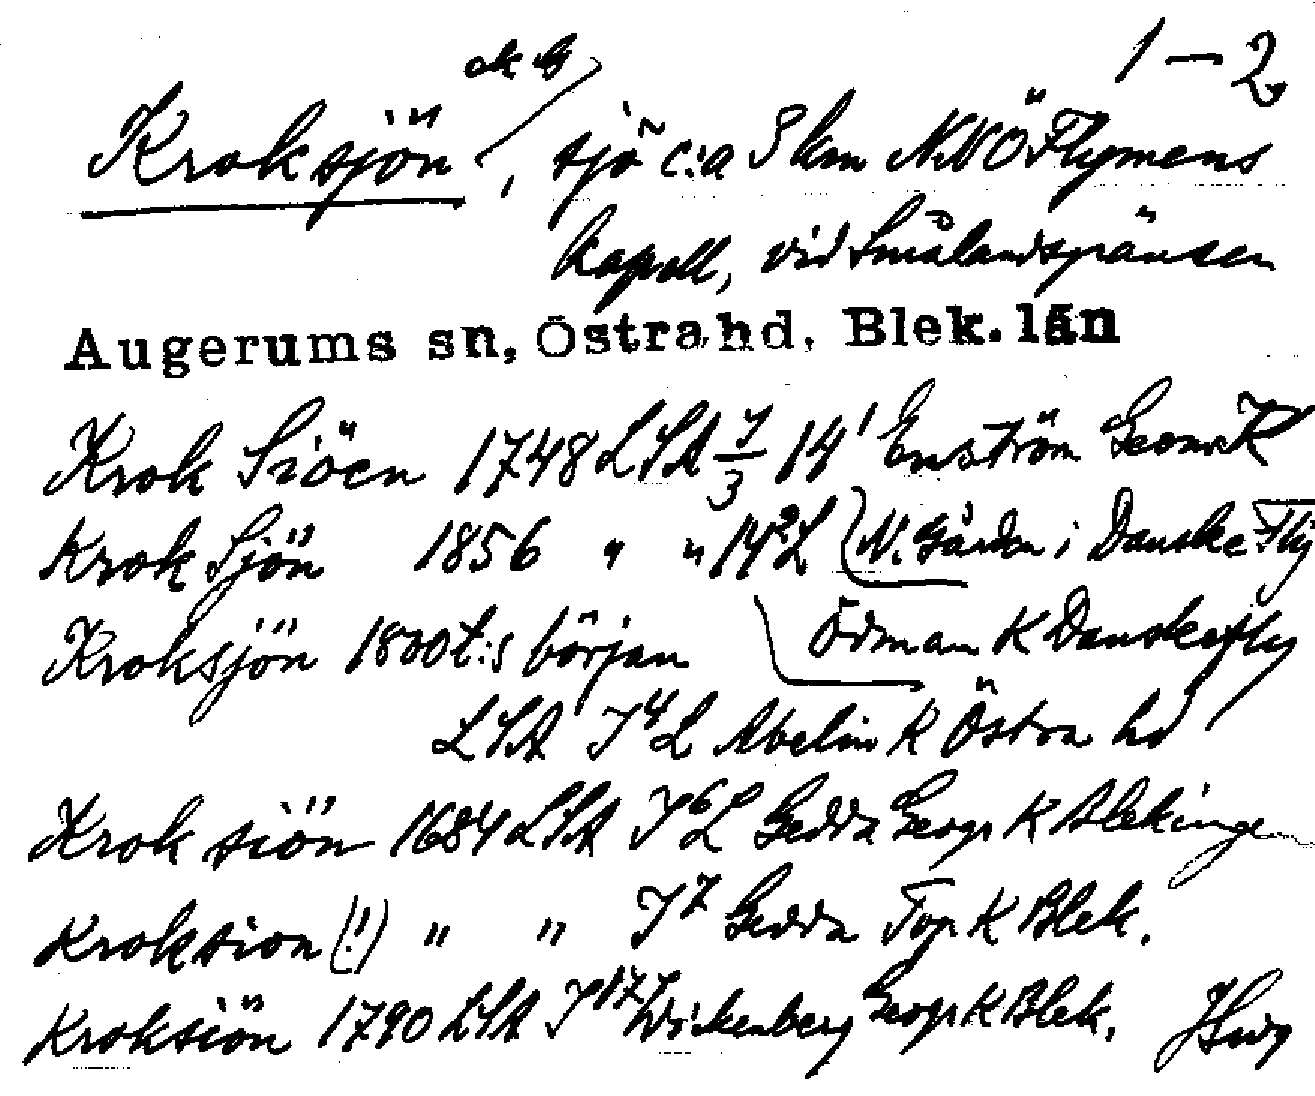 1-2
ek G
Kroksjön, sjö c:a 8 km NNÖ Flymens
kapell, vid Smålandsgränsen
Augerums sn, Östra hd, Blek. län
Krok Siöen 1748 LSA 7/3 14¹ Enström Geom K
Krok Sjön 1856 " " 14²L N. Gården i Danske Fly
Kroksjön 1800t:s början Ödman K Danskefly
LSA I⁴L Abelin K Östra hd
Krok siön 1684 LSA I⁶L Gedda Geogr K Blekinge
Kroksion (!) " " I⁷ Gedda Top K Blek.
Kroksiön 1790 LSA I¹⁷ Wickenberg Geogr K Blek.